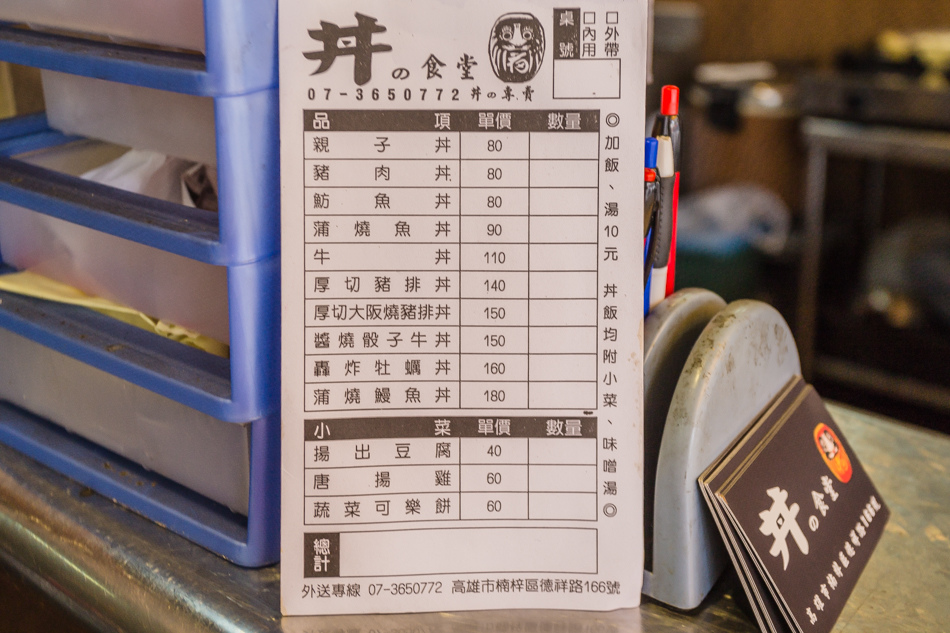 丼の食堂
桌號 □內用 □外帶
07-3650772 丼の專賣
品項 單價 數量
親子丼 80
豬肉丼 80
魴魚丼 80
蒲燒魚丼 90
牛丼 110
厚切豬排丼 140
厚切大阪燒豬排丼 150
醬燒骰子牛丼 150
轟炸牡蠣丼 160
蒲燒鰻魚丼 180
小菜 單價 數量
揚出豆腐 40
唐揚雞 60
蔬菜可樂餅 60
總計
外送專線 07-3650772 高雄市楠梓區德祥路166號
◎加飯、湯10元 丼飯均附小菜、味噌湯◎
丼の食堂